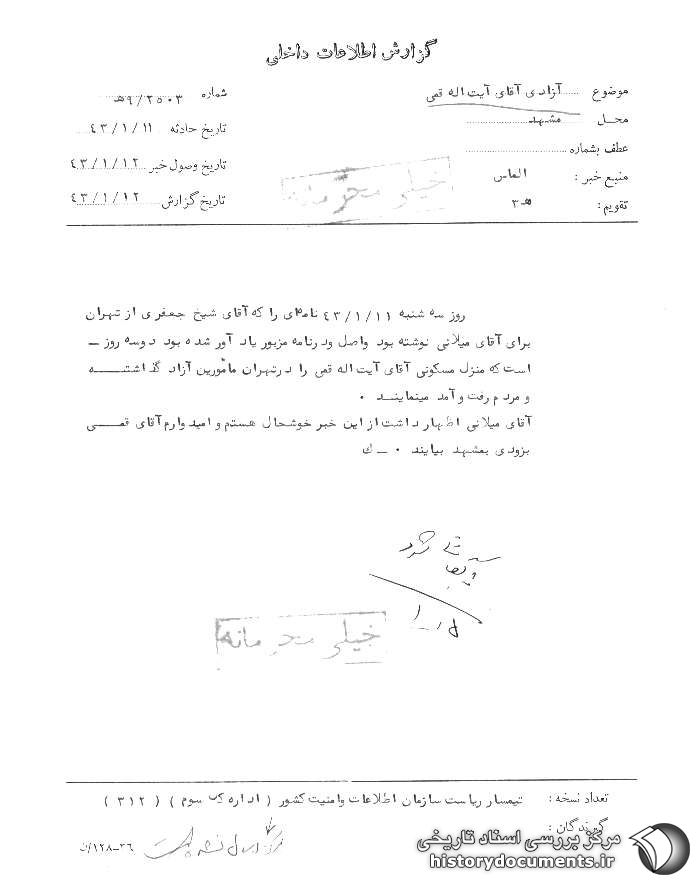 گزارش اطلاعات داخلی
موضوع آزادی آقای آیت اله قمی
محل مشهد
عطف بشماره
منبع خبر : الماس
تقویم : هـ ۳
شماره ۹/۲۵۰۳هـ
تاریخ حادثه ۴۳/۱/۱۱
تاریخ وصول خبر ۴۳/۱/۱۲
تاریخ گزارش ۴۳/۱/۱۲
خیلی محرمانه
روز سه شنبه ۴۳/۱/۱۱ نامه‌ای را که آقای شیخ جعفری از تهران
برای آقای میلانی نوشته بود واصل ودرنامه مزبور یاد آور شده بود دوسه روز ــ
است که منزل مسکونی آقای آیت اله قمی را درتهران مأمورین آزاد گذاشتــــه
و مردم رفت و آمد مینماینـد ۰
آقای میلانی اظهار داشت از این خبر خوشحال هستم و امیدوارم آقای قمــــی
بزودی بمشهد بیایند ۰ ــ ك
خیلی محرمانه
تعداد نسخه : تیمسار ریاست سازمان اطلاعات وامنیت کشور ( اداره کل سوم ) ( ۳۱۲ )
گیرندگان :
۳۶–۱۲۸/ن
مرکز بررسی اسناد تاریخی
historydocuments.ir